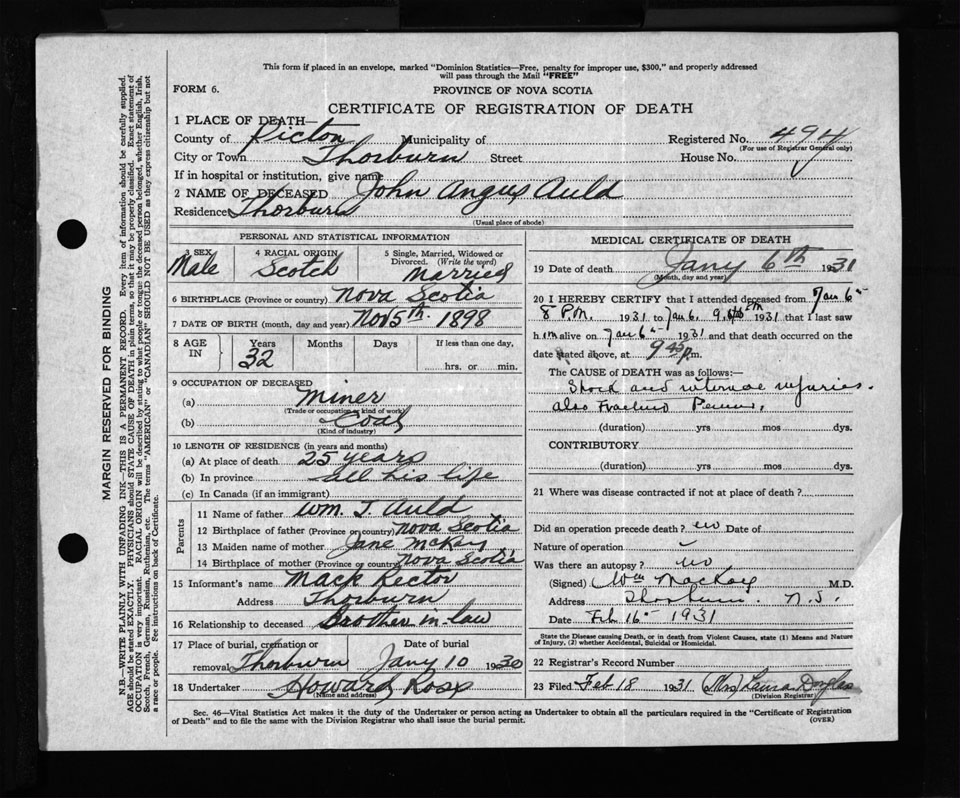 This form if placed in an envelope, marked "Dominion Statistics—Free, penalty for improper use, $300," and properly addressed
will pass through the Mail "FREE"
FORM 6.
PROVINCE OF NOVA SCOTIA
CERTIFICATE OF REGISTRATION OF DEATH
1 PLACE OF DEATH—
County of Pictou Municipality of Registered No. 494
(For use of Registrar General only)
City or Town Thorburn Street House No.
If in hospital or institution, give name
2 NAME OF DECEASED John Angus Auld
Residence Thorburn
(Usual place of abode)
PERSONAL AND STATISTICAL INFORMATION
3 SEX Male
4 RACIAL ORIGIN Scotch
5 Single, Married, Widowed or Divorced. (Write the word) Married
6 BIRTHPLACE (Province or country) Nova Scotia
7 DATE OF BIRTH (month, day and year) Nov 5th 1898
8 AGE IN Years 32 Months Days If less than one day, hrs. or min.
9 OCCUPATION OF DECEASED
(a) Miner
(Trade or occupation or kind of work)
(b) Coal
(Kind of industry)
10 LENGTH OF RESIDENCE (in years and months)
(a) At place of death 25 years
(b) In province all his life
(c) In Canada (if an immigrant)
Parents
11 Name of father Wm. J. Auld
12 Birthplace of father (Province or country) Nova Scotia
13 Maiden name of mother Jane McKay
14 Birthplace of mother (Province or country) Nova Scotia
15 Informant's name Mack Rector
Address Thorburn
16 Relationship to deceased Brother in-law
17 Place of burial, cremation or removal Thorburn Date of burial Jany 10 1930
18 Undertaker Howard Ross
(Name and address)
MEDICAL CERTIFICATE OF DEATH
19 Date of death Jany 6th 1931
(Month, day and year)
20 I HEREBY CERTIFY that I attended deceased from Jan 6
8 P.M. 1931 to Jan 6. 1931 that I last saw
him alive on Jan 6 1931 and that death occurred on the
date stated above, at 9 45 p.m.
The CAUSE of DEATH was as follows:—
Shock and internal injuries.
also Fractured
(duration) yrs mos dys.
CONTRIBUTORY
(duration) yrs mos dys.
21 Where was disease contracted if not at place of death?
Did an operation precede death? no Date of
Nature of operation
Was there an autopsy? no
(Signed) Wm MacKay M.D.
Address Thorburn. N.S.
Date Feb 16 1931
State the Disease causing Death, or in death from Violent Causes, state (1) Means and Nature
of Injury, (2) whether Accidental, Suicidal or Homicidal.
22 Registrar's Record Number
23 Filed Feb 18 1931 (Mrs) Laura Douglas
(Division Registrar)
Sec. 46—Vital Statistics Act makes it the duty of the Undertaker or person acting as Undertaker to obtain all the particulars required in the "Certificate of Registration
of Death" and to file the same with the Division Registrar who shall issue the burial permit.
(OVER)
MARGIN RESERVED FOR BINDING
N.B.—WRITE PLAINLY WITH UNFADING INK—THIS IS A PERMANENT RECORD. Every item of information should be carefully supplied.
AGE should be stated EXACTLY. PHYSICIANS should STATE CAUSE OF DEATH in plain terms, so that it may be properly classified. Exact statement of
OCCUPATION is very important. RACIAL ORIGIN will be described by stating to what people or race the deceased person belonged, whether English, Irish,
Scotch, French, German, Russian, Ruthenian, etc. The terms "AMERICAN" or "CANADIAN" SHOULD NOT BE USED as they express citizenship but not
a race or people. See instructions on back of Certificate.